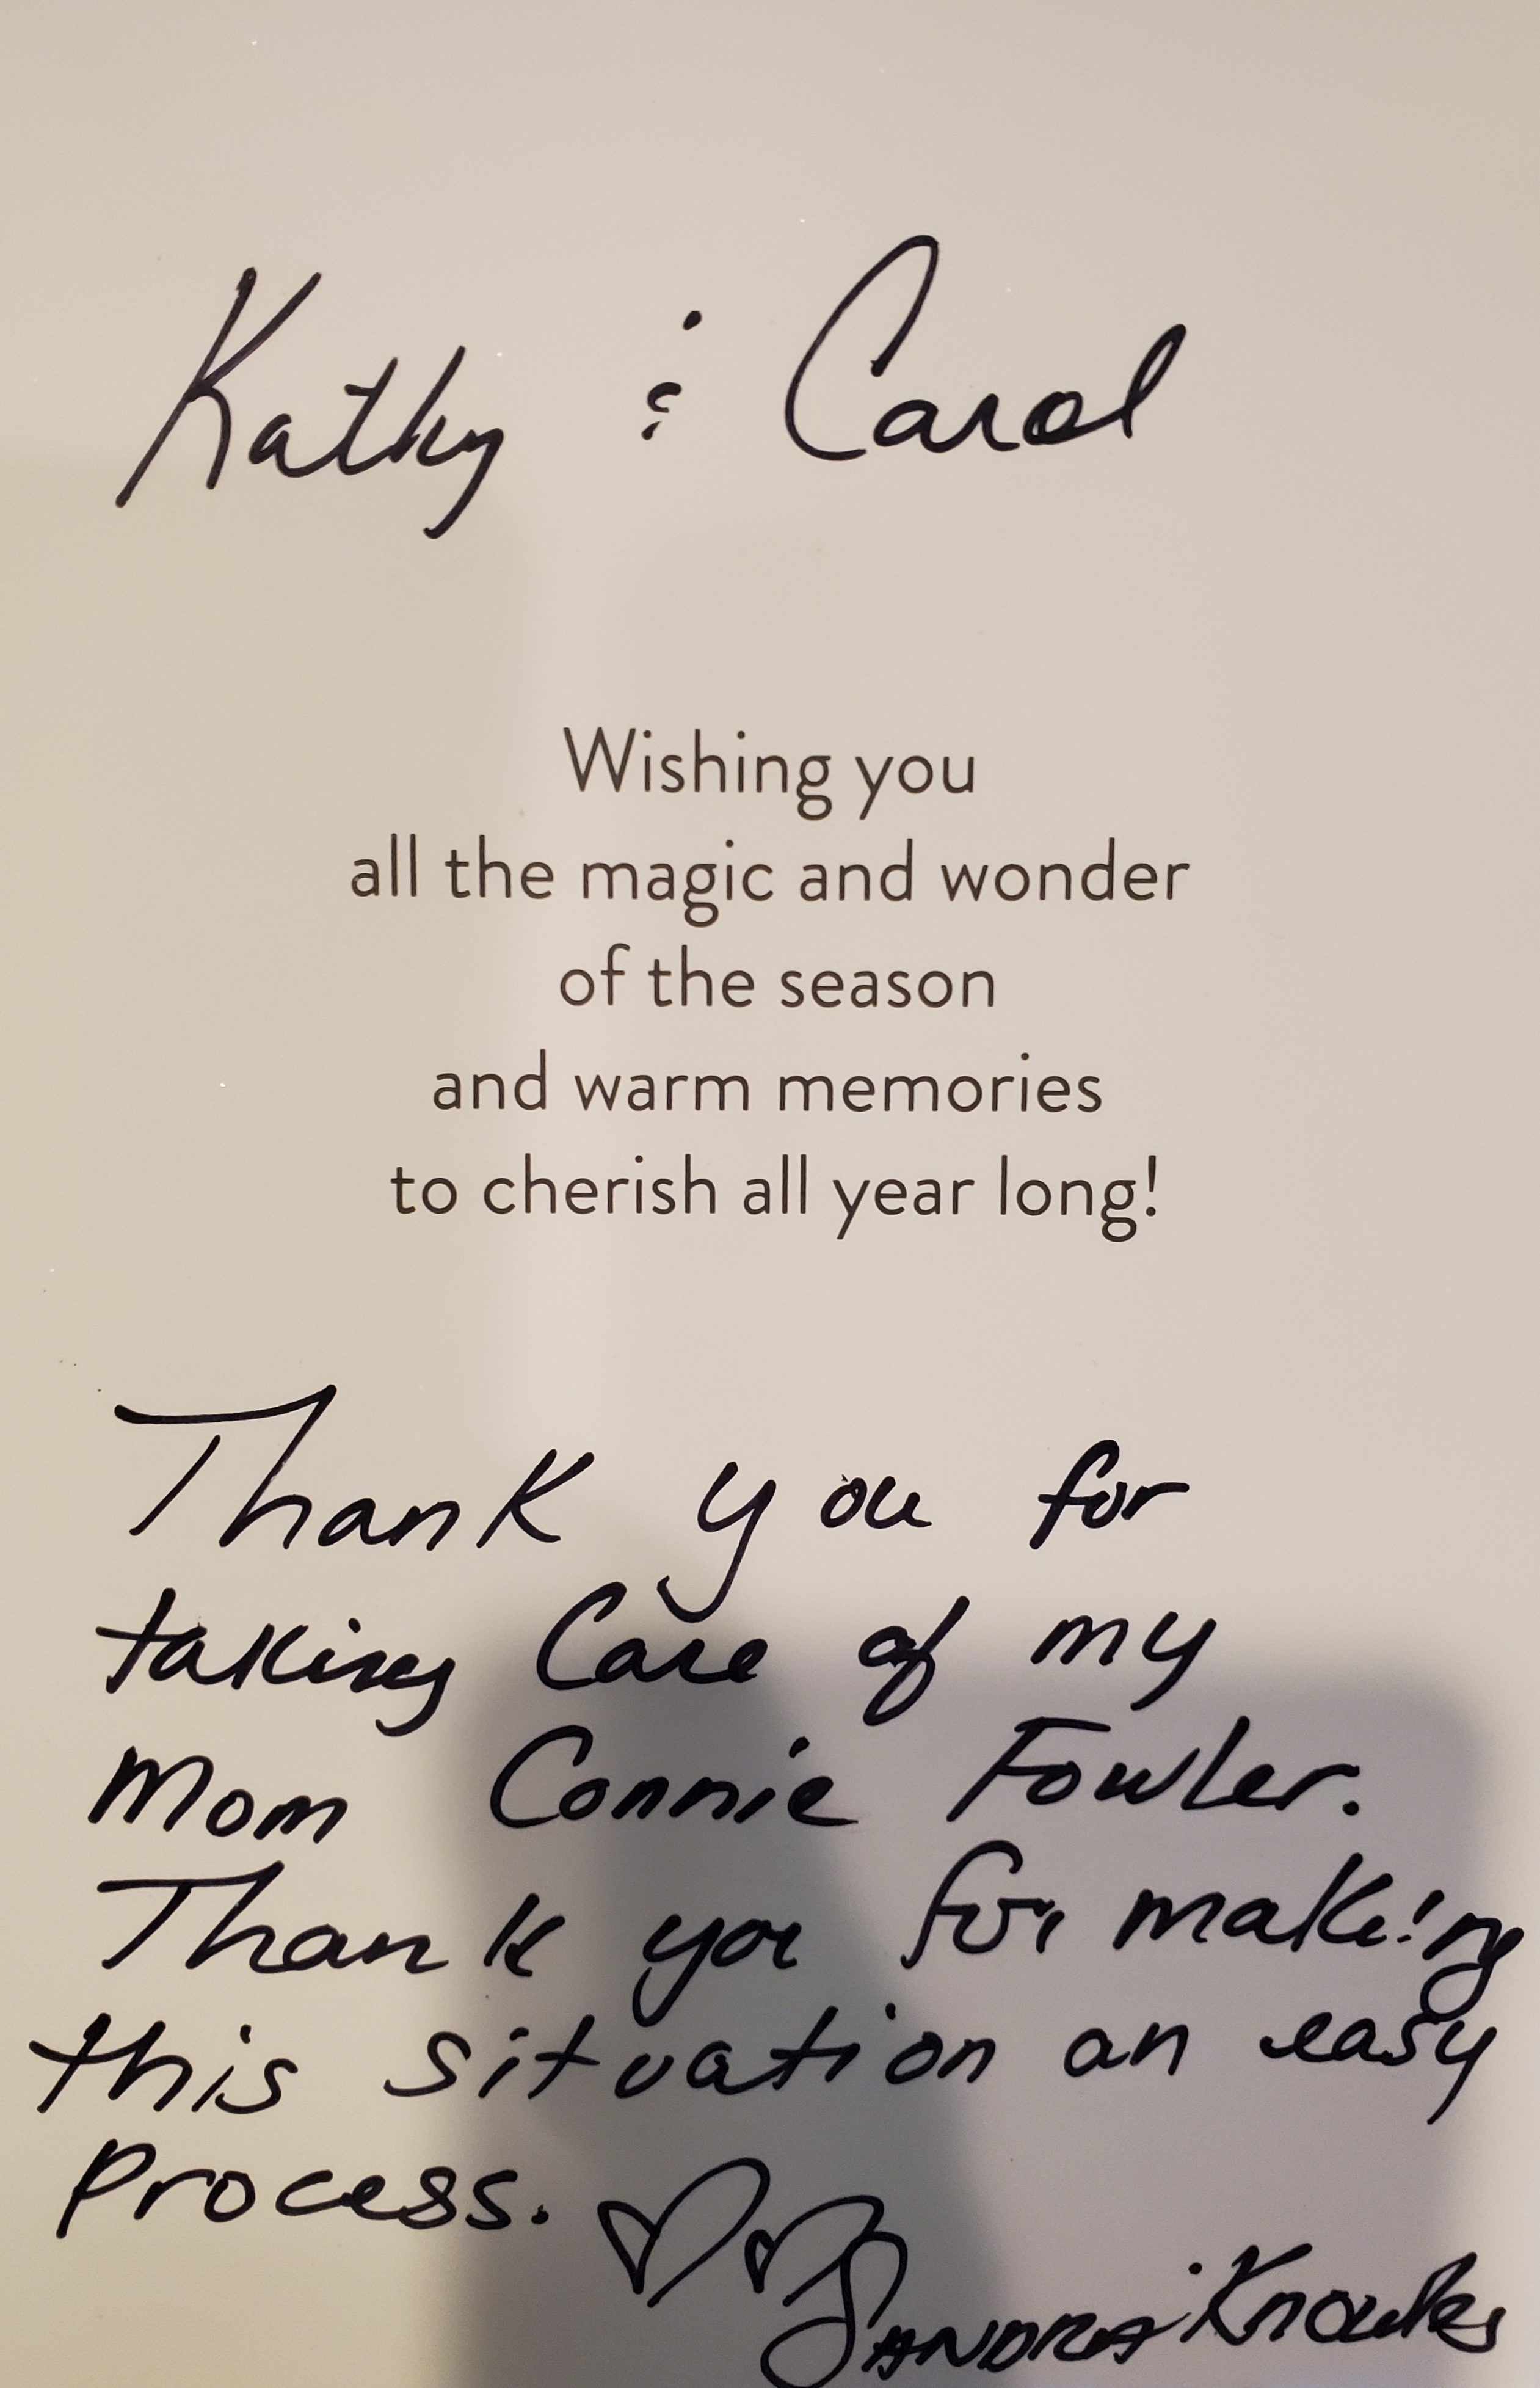 Kathy & Carol
Wishing you
all the magic and wonder
of the season
and warm memories
to cherish all year long!
Thank you for
taking Care of my
Mom Connie Fowler.
Thank you for making
this situation an easy
Process.
SANDRA Knowles